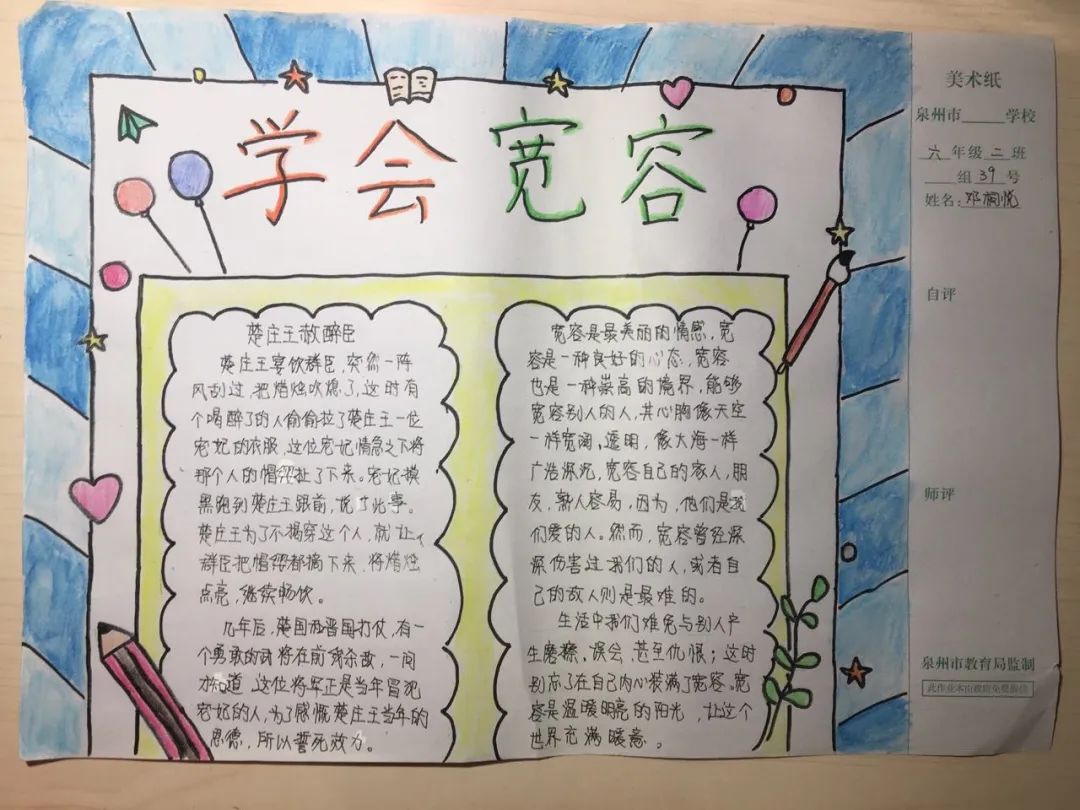 学会宽容
楚庄王敬醉臣
楚庄王宴饮群臣，突然一阵
风刮过，把焟烛吹熄了，这时有
个喝醉了的人偷偷拉了楚庄王一位
宠妃的衣服，这位宠妃情急之下将
那个人的帽缨扯了下来。宠妃摸
黑跑到楚庄王跟前，说了此事。
楚庄王为了不揭穿这个人，就让
群臣把帽缨都摘下来，将焟烛
点亮，继续畅饮。
几年后，楚国和晋国打仗，有一
个勇敢的武将在前线杀敌，一问
才知道，这位将军正是当年冒犯
宠妃的人，为了感慨楚庄王当年的
恩德，所以誓死效力。
宽容是最美丽的情感，宽
容是一种良好的心态，宽容
也是一种崇高的境界，能够
宽容别人的人，其心胸像天空
一样宽阔、透明，像大海一样
广浩深沉，宽容自己的家人，朋
友，熟人容易，因为，他们是我
们爱的人。然而，宽容曾经深
深伤害过我们的人，或者自
己的敌人则是最难的。
生活中我们难免与别人产
生磨擦、误会，甚至仇恨；这时
别忘了在自己内心装满了宽容。宽
容是温暖明亮的阳光，让这个
世界充满暖意。
美术纸
泉州市____学校
六年级二班
____组39号
姓名：邓桐悦
自评
师评
泉州市教育局监制
此作业本由政府免费提供